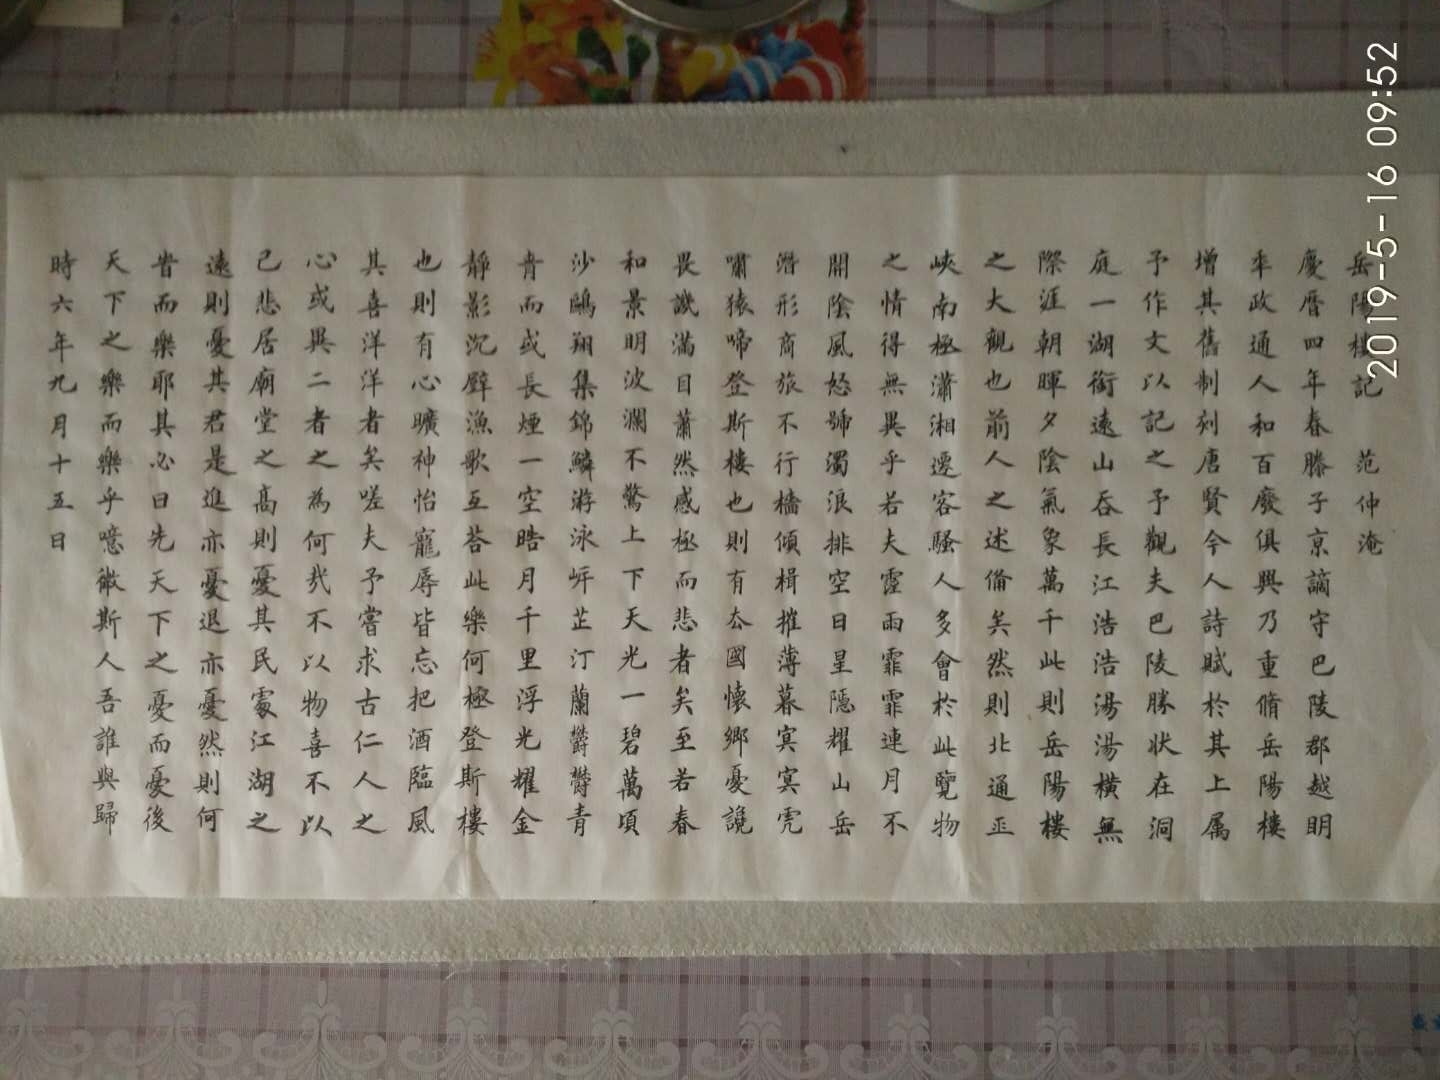 岳陽樓記 范仲淹
慶曆四年春滕子京謫守巴陵郡越明
年政通人和百廢俱興乃重脩岳陽樓
增其舊制刻唐賢今人詩賦於其上属
予作文以記之予觀夫巴陵勝狀在洞
庭一湖銜遠山吞長江浩浩湯湯橫無
際涯朝暉夕陰氣象萬千此則岳陽樓
之大觀也前人之述備矣然則北通巫
峽南極瀟湘遷客騷人多會於此覽物
之情得無異乎若夫霪雨霏霏連月不
開陰風怒號濁浪排空日星隱耀山岳
潛形商旅不行檣傾楫摧薄暮冥冥虎
嘯猿啼登斯樓也則有去國懷鄉憂讒
畏譏滿目蕭然感極而悲者矣至若春
和景明波瀾不驚上下天光一碧萬頃
沙鷗翔集錦鱗游泳岸芷汀蘭鬱鬱青
青而或長煙一空皓月千里浮光耀金
靜影沉璧漁歌互荅此樂何極登斯樓
也則有心曠神怡寵辱皆忘把酒臨風
其喜洋洋者矣嗟夫予嘗求古仁人之
心或異二者之為何哉不以物喜不以
己悲居廟堂之高則憂其民處江湖之
遠則憂其君是進亦憂退亦憂然則何
旹而樂耶其必曰先天下之憂而憂後
天下之樂而樂乎噫微斯人吾誰與歸
時六年九月十五日
2019-5-16 09:52